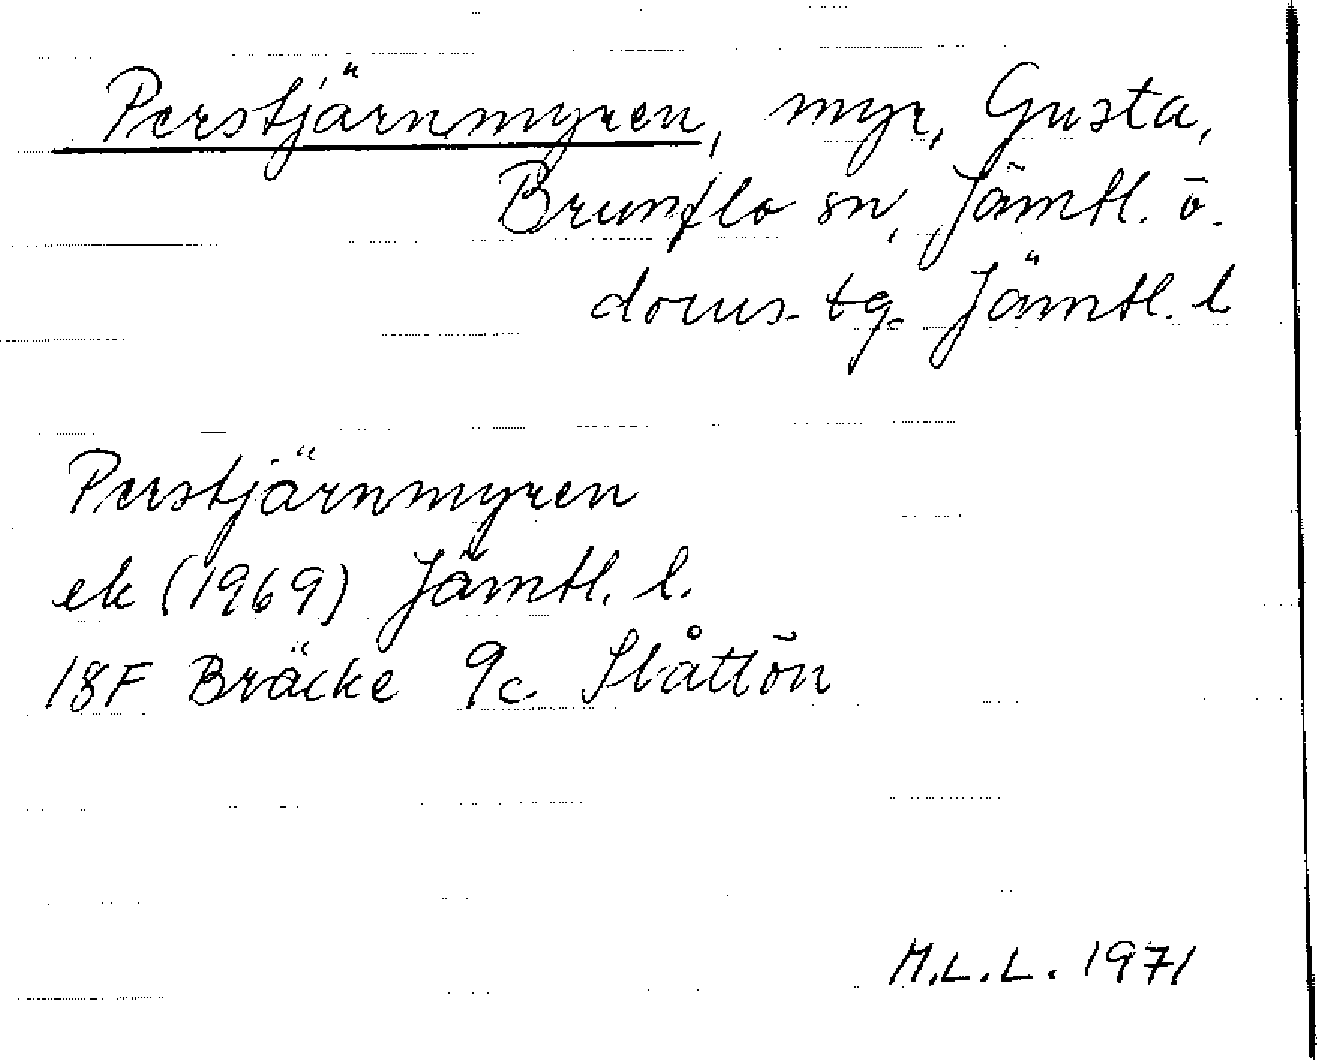 Perstjärnmyren, myr, Gusta,
Brunflo sn, Jämtl. ö.
doms. tg. Jämtl. l
Perstjärnmyren
ek (1969) Jämtl. l.
18F Bräcke 9c Slåttön
M.L.L. 1971